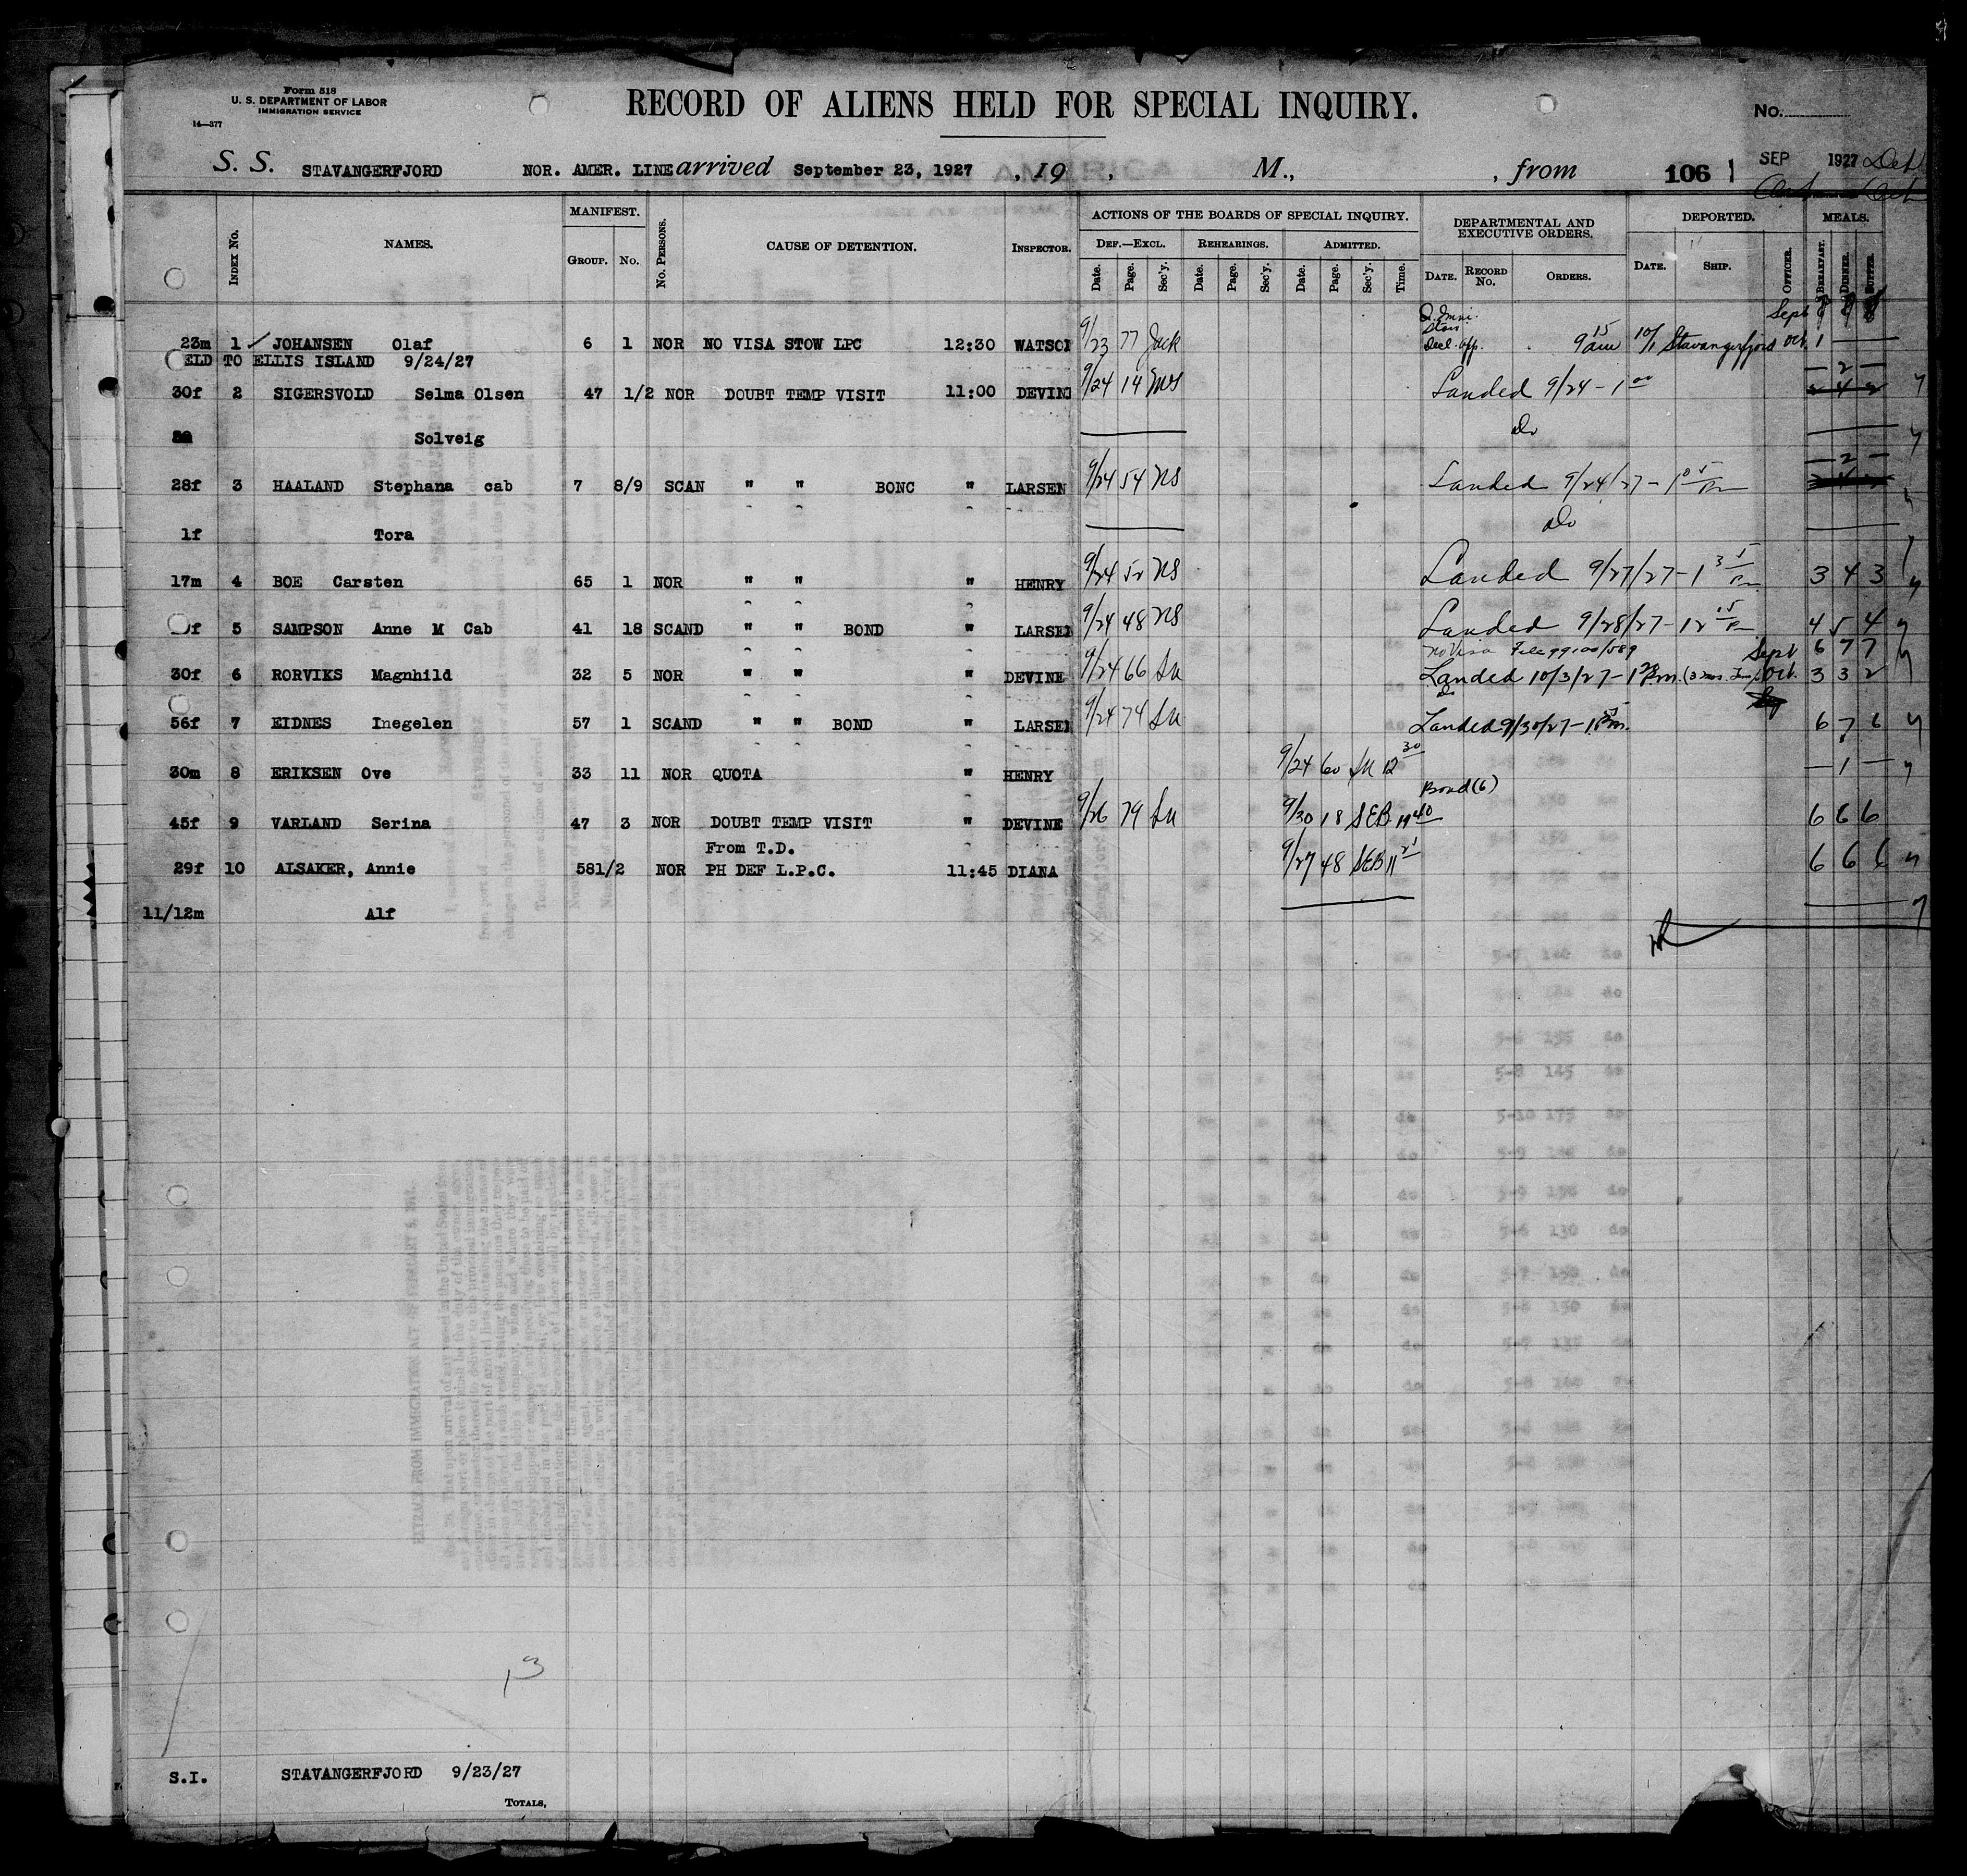 Form 518
U. S. DEPARTMENT OF LABOR
IMMIGRATION SERVICE
14—377
RECORD OF ALIENS HELD FOR SPECIAL INQUIRY.
No.
S. S. STAVANGERFJORD NOR. AMER. LINE arrived September 23, 1927 , 19 , M., , from 106 SEP 1927
INDEX No. NAMES. MANIFEST. GROUP. No. No. PERSONS. CAUSE OF DETENTION. INSPECTOR. ACTIONS OF THE BOARDS OF SPECIAL INQUIRY. DEF.—EXCL. Date. Page. Sec'y. REHEARINGS. Date. Page. Sec'y. ADMITTED. Date. Page. Sec'y. Time. DEPARTMENTAL AND EXECUTIVE ORDERS. DATE. RECORD No. ORDERS. DEPORTED. DATE. SHIP. OFFICER. MEALS. BREAKFAST. DINNER. SUPPER.
23m 1 JOHANSEN Olaf 6 1 NOR NO VISA STOW LPC 12:30 WATSON 9/23 77 Jack 9 15 am 10/1 Stavangerfjord Oct. 1
ELD TO ELLIS ISLAND 9/24/27
30f 2 SIGERSVOLD Selma Olsen 47 1/2 NOR DOUBT TEMP VISIT 11:00 DEVINE 9/24 14 Landed 9/24 - 1 00 — 2 —
Solveig Do
28f 3 HAALAND Stephana cab 7 8/9 SCAN " " BONC " LARSEN 9/24 54 NS Landed 9/24/27 - 1 05 — 2 —
1f Tora Do
17m 4 BOE Carsten 65 1 NOR " " " HENRY 9/24 52 NS Landed 9/27/27 - 1 35 3 4 3
f 5 SAMPSON Anne M Cab 41 18 SCAND " " BOND " LARSEN 9/24 48 NS Landed 9/28/27 - 12 15 4 5 4
No Visa File 99100/589 Sept 6 7 7
30f 6 RORVIKS Magnhild 32 5 NOR " " " DEVINE 9/24 66 Landed 10/3/27 - 1 Oct. 3 3 2
56f 7 EIDNES Inegelen 57 1 SCAND " " BOND " LARSEN 9/24 74 Landed 9/30/27 - 6 7 6
30m 8 ERIKSEN Ove 33 11 NOR QUOTA " HENRY 9/24 60 12 30 — 1 —
Bond (6)
45f 9 VARLAND Serina 47 3 NOR DOUBT TEMP VISIT " DEVINE 9/26 79 9/30 18 SEB 11 40 6 6 6
From T.D.
29f 10 ALSAKER, Annie 581/2 NOR PH DEF L.P.C. 11:45 DIANA 9/27 48 SEB 11 6 6 6
11/12m Alf
13
S.I. STAVANGERFJORD 9/23/27
TOTALS,